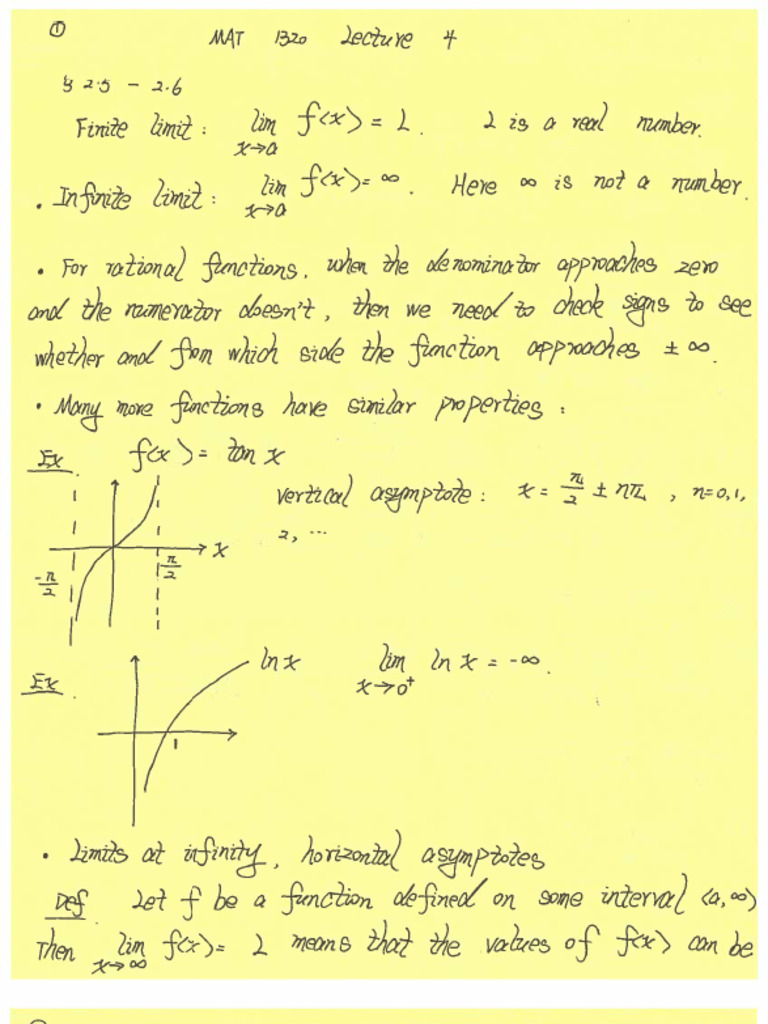 ①
MAT 1320 Lecture 4
§ 2.5 - 2.6
Finite limit: lim f(x) = L. L is a real number.
x→a
• Infinite limit: lim f(x) = ∞. Here ∞ is not a number.
x→a
• For rational functions, when the denominator approaches zero
and the numerator doesn't, then we need to check signs to see
whether and from which side the function approaches ± ∞.
• Many more functions have similar properties:
Ex f(x) = tan x
vertical asymptote: x = π/2 ± nπ, n=0,1,
2, ...
x
-π/2
π/2
Ex.
ln x
lim ln x = -∞.
x→0⁺
1
• Limits at infinity, horizontal asymptotes
Def Let f be a function defined on some interval (a,∞)
Then lim f(x) = L means that the values of f(x) can be
x→∞